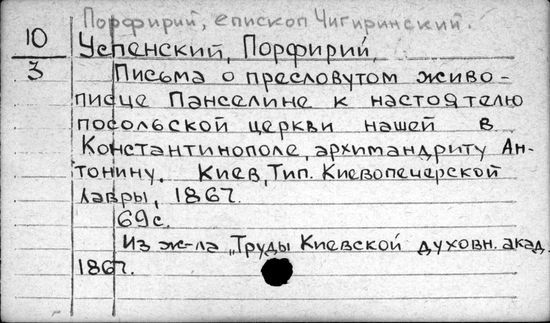 Порфирий, епископ Чигиринский.
10
Успенский, Порфирий,
3
Письма о пресловутом живо-
писце Панселине к настоятелю
посольской церкви нашей в
Константинополе, архимандриту Ан-
тонину. Киев, Тип. Киевопечерской
лавры, 1867.
69 с.
Из ж-ла „Труды Киевской духовн. акад.
1867.